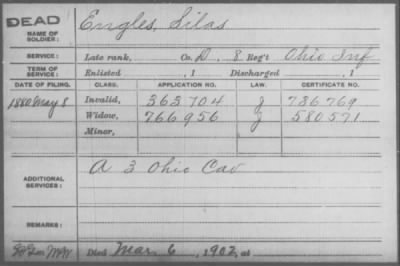 DEAD
NAME OF SOLDIER: Engles, Silas
SERVICE: Late rank, Co. D, 8 Reg't Ohio Inf
TERM OF SERVICE: Enlisted , 1 Discharged , 1
DATE OF FILING. CLASS. APPLICATION NO. LAW. CERTIFICATE NO.
1880 May 8 Invalid, 363704 J 786769
Widow, 766956 J 580571
Minor,
ADDITIONAL SERVICES: A 3 Ohio Cav
REMARKS:
Died Mar. 6, 1902, at